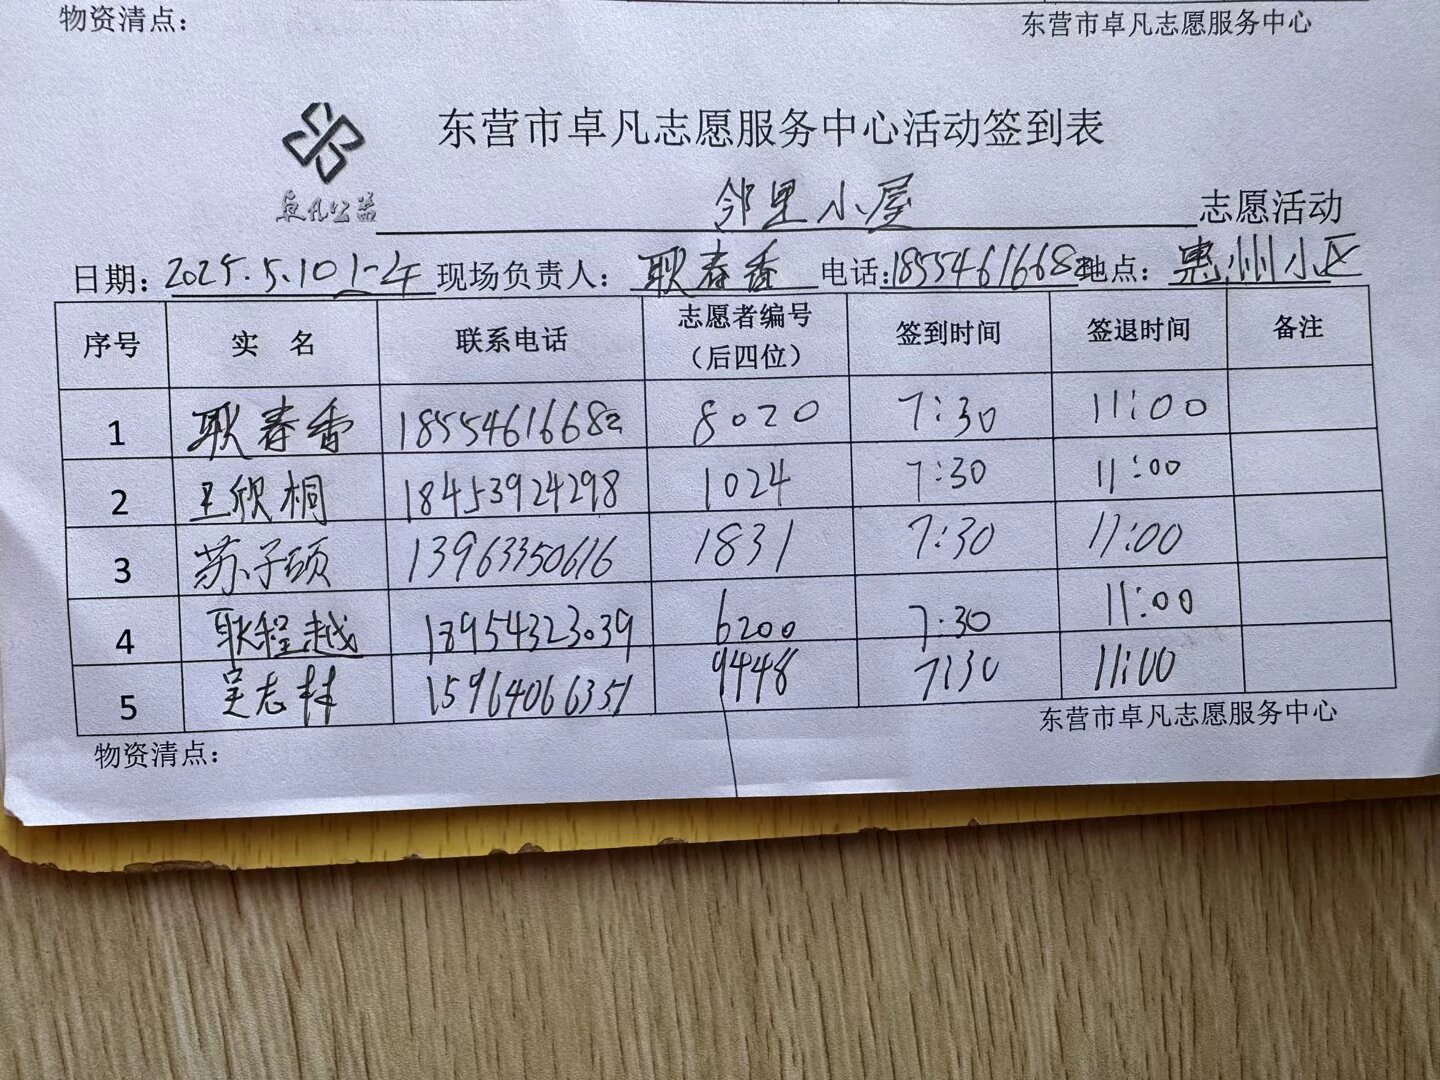 物资清点： 东营市卓凡志愿服务中心
东营市卓凡志愿服务中心活动签到表
卓凡公益 邻里小屋 志愿活动
日期：2025.5.10上午 现场负责人：耿春香 电话：18554616682 地点：惠州小区
序号 实 名 联系电话 志愿者编号（后四位） 签到时间 签退时间 备注
1 耿春香 18554616682 8020 7:30 11:00
2 王欣桐 18453924298 1024 7:30 11:00
3 苏子硕 13963350616 1831 7:30 11:00
4 耿程越 18954323039 6200 7:30 11:00
5 吴志林 15964066351 9448 7:30 11:00
物资清点： 东营市卓凡志愿服务中心